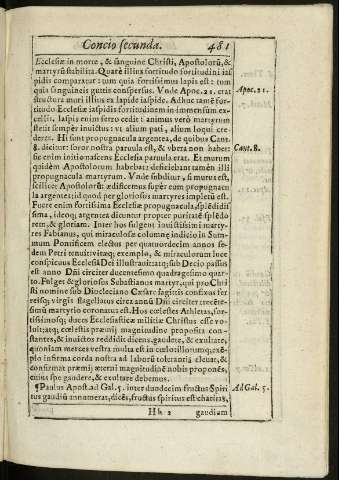 Concio secunda. 481
Ecclesiæ in morte, & sanguine Christi, Apostolorũ, &
martyrũ stabilita. Quare illius fortitudo fortitudini ias
pidis comparatur: tum quia fortissimus lapis est: tum
quia sanguineis guttis conspersus. Vnde Apoc. 21. erat Apoc. 21.
structura muri illius ex lapide iaspide. Adhuc tamẽ for-
titudo Ecclesiæ iaspidis fortitudinem in immensum ex-
cellit. Iaspis enim ferro cedit: animus verò martyrum
stetit semper inuictus: vt alium pati, alium loqui cre-
deres. Hi sunt propugnacula argentea, de quibus Cant.
8. dicitur: soror nostra paruula est, & vbera non habet: Cant. 8.
sic enim initio nascens Ecclesia paruula erat. Et murum
quidem Apostolorum habebat: desiderabat tamẽn illi
propugnacula martyrum. Vnde subditur, si murus est,
scilicet Apostolorũ: ædificemus supèr eum propugnacu
la argentea: id quod per gloriosus martyres impletũ est.
Fuere enim fortissima Ecclesiæ propugnacula, splẽdidis
sima, ideoq; argentea dicuntur propter puritatẽ splẽdo
rem, & gloriam. Inter hos fulgent inuictissimi marty-
res Fabianus, qui miraculose columnę indicio in Sum-
mum Pontificem electus per quatuordecim annos se-
dem Petri tenuit: vitæq; exemplo, & miraculorum luce
conspicuus Ecclesiã Dei illustrauit: atq; sub Decio passus
est anno Dñi circiter ducentesimo quadragesimo quar-
to. Fulget & gloriosus Sebastianus martyr, qui pro Chri
sti nomine sub Diocleciano Cæsare sagittis confixus fer
reisq; virgis flagellatus circa annũ Dñi circiter trecẽte-
simũ martyrio coronatus est. Hos cœlestes Athletas, for-
tissimosq; duces Ecclesiasticæ militiæ Christus esse vo-
luit: atq; cœlestis præmij magnitudine proposita con-
stantes, & inuictos reddidit: dicens, gaudete, & exultate,
quoniam merces vestra multa est in cœlo: illorumq; exẽ-
plo infirma corda nostra ad laborũ tolerantiã eleuat, &
confirmat præmij æterni magnitudinẽ nobis proponẽs,
cuius spe gaudere, & exultare debemus.
¶ Paulus Apost. ad Gal. 5. inter duodecim fructus Spiri Ad Gal. 5.
tus gaudiũ annumerat, dicẽs, fructus spiritus est: charitas,
Hh 2 gaudium